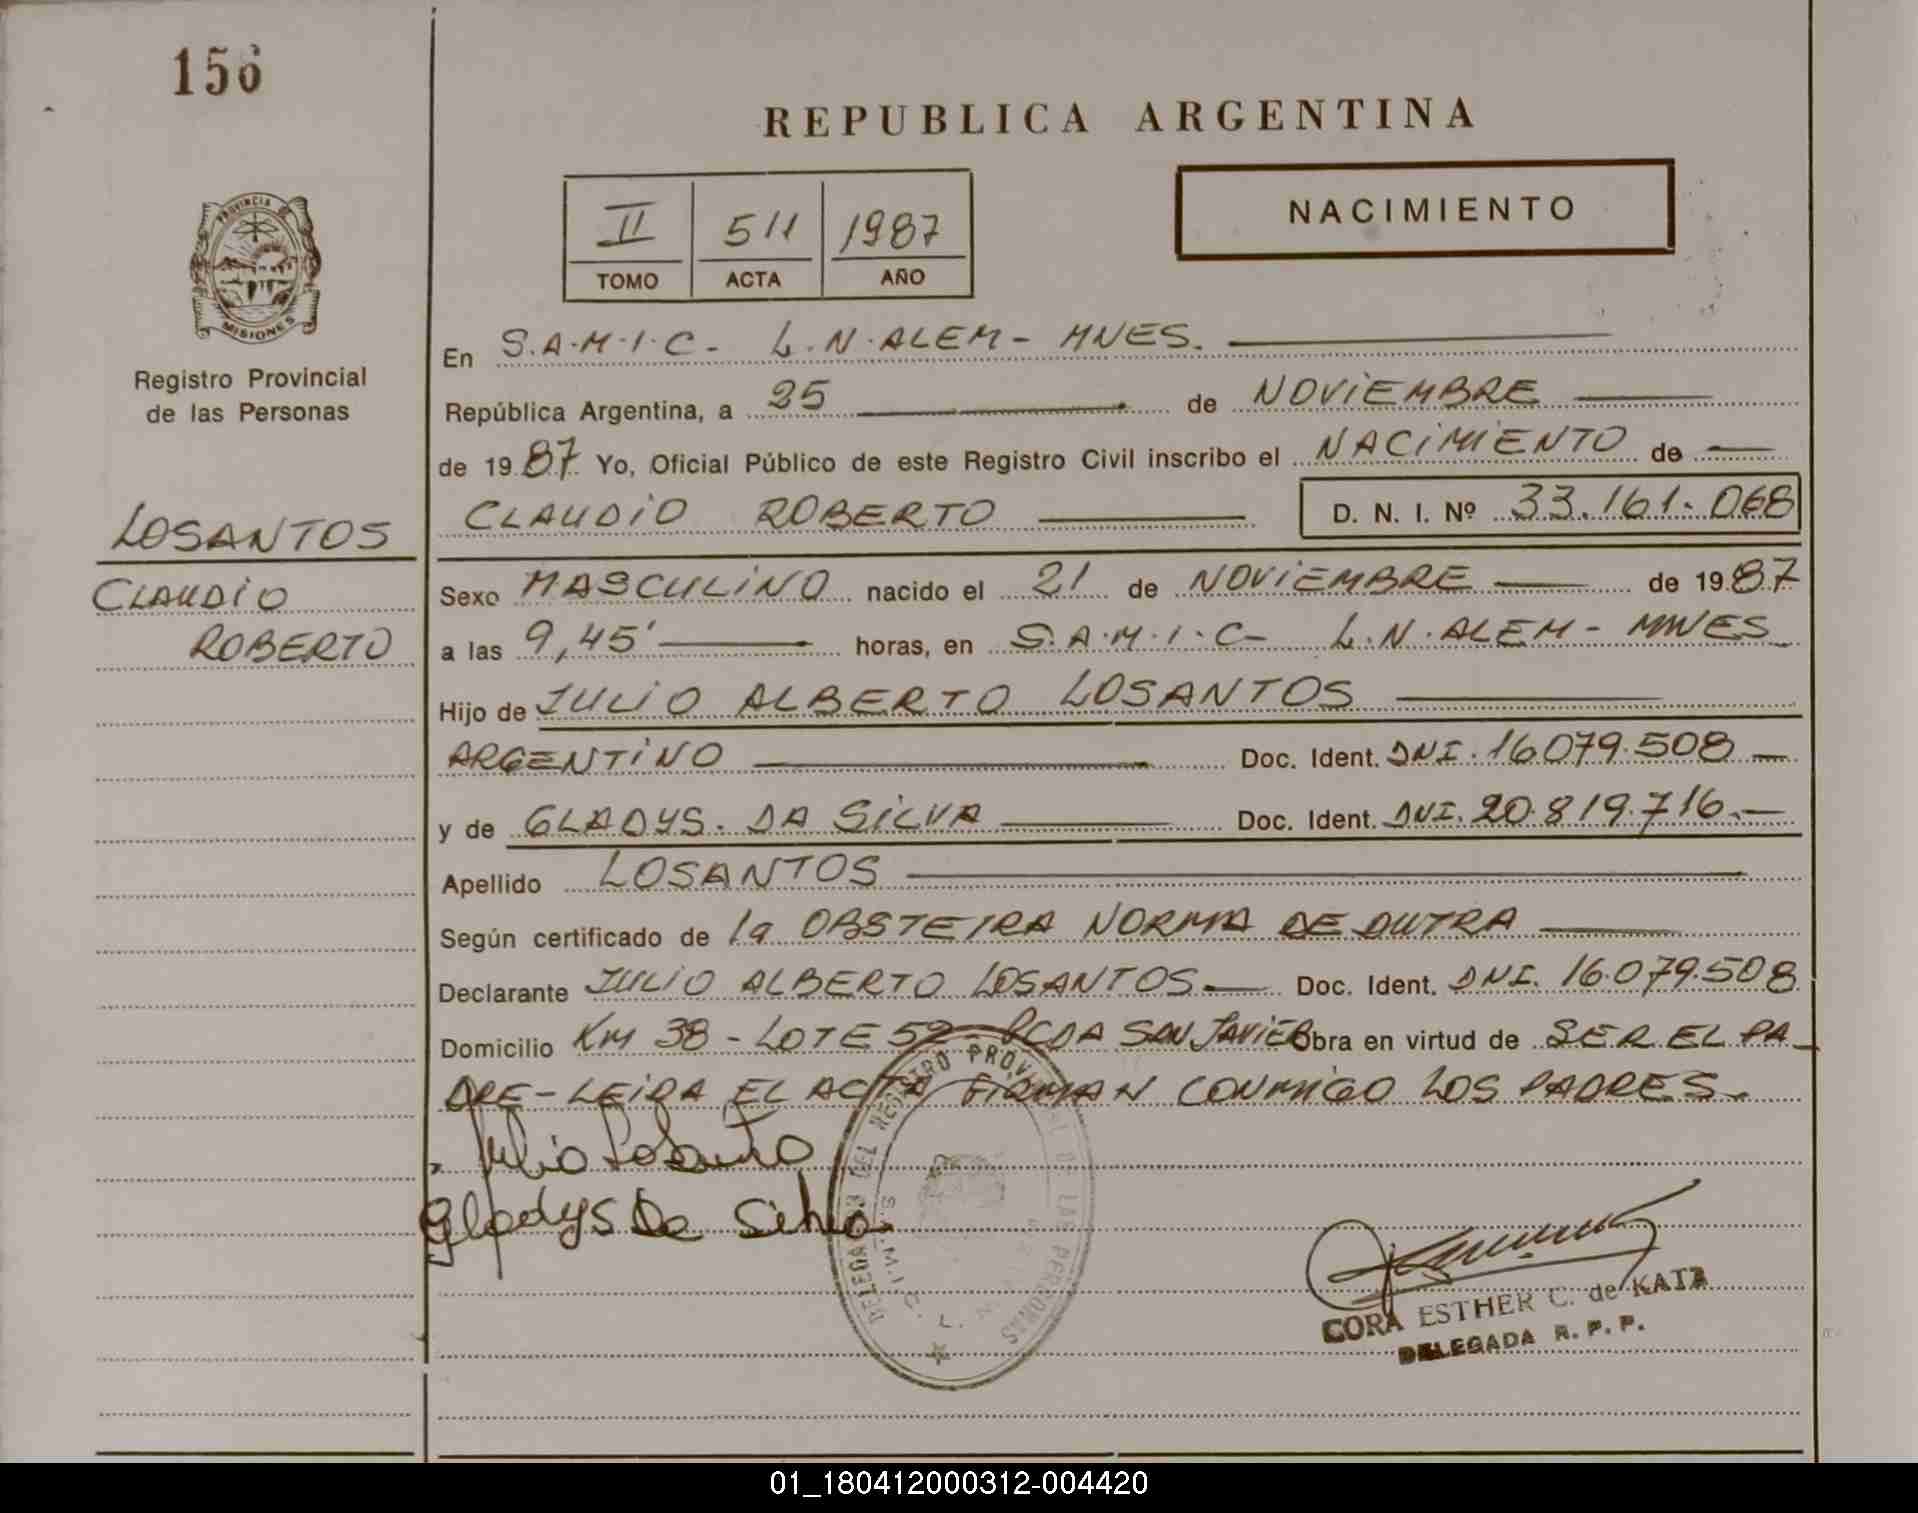 156
REPUBLICA ARGENTINA
NACIMIENTO
II 511 1987
TOMO ACTA AÑO
PROVINCIA DE
MISIONES
Registro Provincial
de las Personas
LOSANTOS
CLAUDIO
ROBERTO
En S.A.M.I.C. - L.N. ALEM - MNES.
República Argentina, a 25 de NOVIEMBRE
de 1987. Yo, Oficial Público de este Registro Civil inscribo el NACIMIENTO de
CLAUDIO ROBERTO D. N. I. Nº 33.161.068
Sexo MASCULINO nacido el 21 de NOVIEMBRE de 1987
a las 9,45' horas, en S.A.M.I.C - L.N. ALEM - MNES
Hijo de JULIO ALBERTO LOSANTOS
ARGENTINO Doc. Ident. DNI. 16.079.508
y de GLADYS. DA SILVA Doc. Ident. DNI. 20.819.716.
Apellido LOSANTOS
Según certificado de la OBSTETRA NORMA DE DUTRA
Declarante JULIO ALBERTO LOSANTOS Doc. Ident. DNI. 16.079.508
Domicilio KM 38 - LOTE 52 - PCDA SAN JAVIER Obra en virtud de SER EL PA-
DRE - LEIDA EL ACTA FIRMAN CONMIGO LOS PADRES.
Julio Losanto
Gladys Da Silva
DELEGACION DEL REGISTRO PROVINCIAL DE LAS PERSONAS
CORA ESTHER C. de KATZ
DELEGADA R. P. P.
01_180412000312-004420